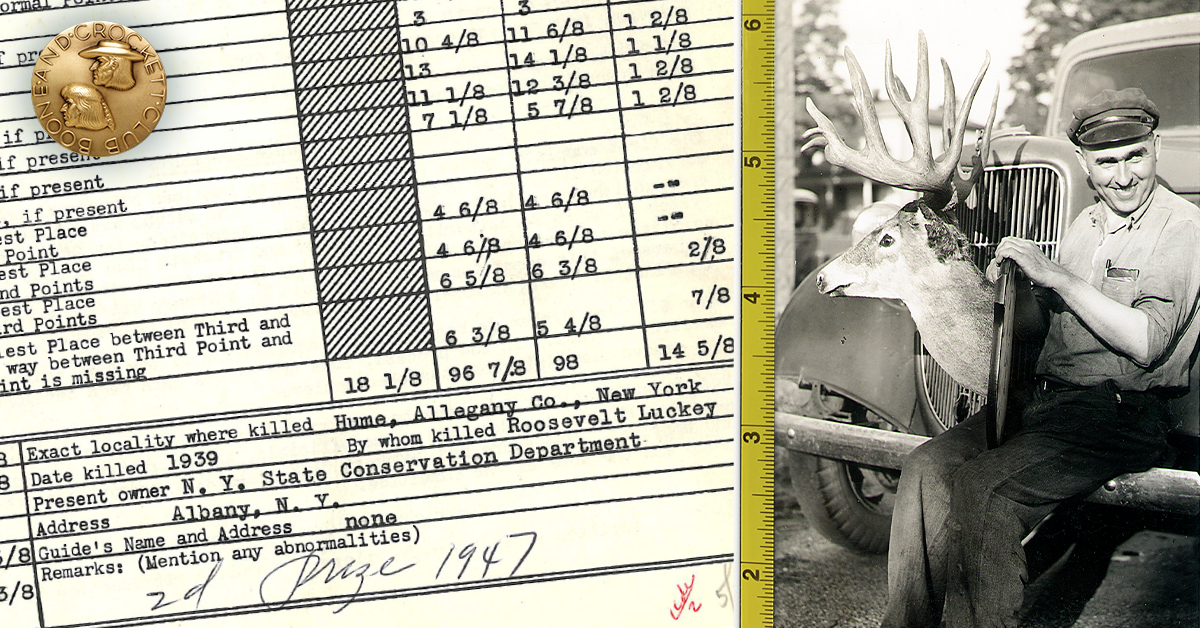 BOONE AND CROCKETT CLUB
3 3
if 10 4/8 11 6/8 1 2/8
13 14 1/8 1 1/8
11 1/8 12 3/8 1 2/8
if 7 1/8 5 7/8 1 2/8
if present
if present
, if present 4 6/8 4 6/8 --
est Place
Point 4 6/8 4 6/8 --
est Place
nd Points 6 5/8 6 3/8 2/8
est Place
rd Points
lest Place between Third and 6 3/8 5 4/8 7/8
way between Third Point and
int is missing
18 1/8 96 7/8 98 14 5/8
Exact locality where killed Hume, Allegany Co., New York
Date killed 1939 By whom killed Roosevelt Luckey
Present owner N. Y. State Conservation Department
Address Albany, N. Y.
Guide's Name and Address none
Remarks: (Mention any abnormalities)
2d Prize 1947
6
5
4
3
2